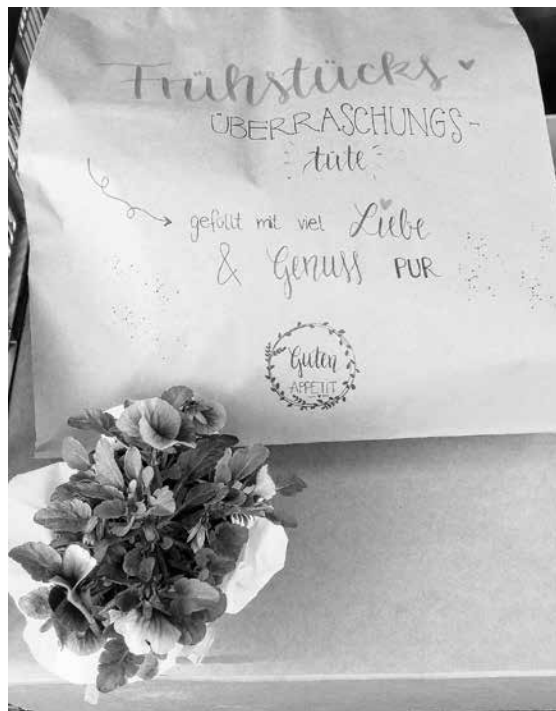 Frühstücks
ÜBERRASCHUNGS-
tüte
gefüllt mit viel Liebe
& Genuss PUR
Guten
APPETIT